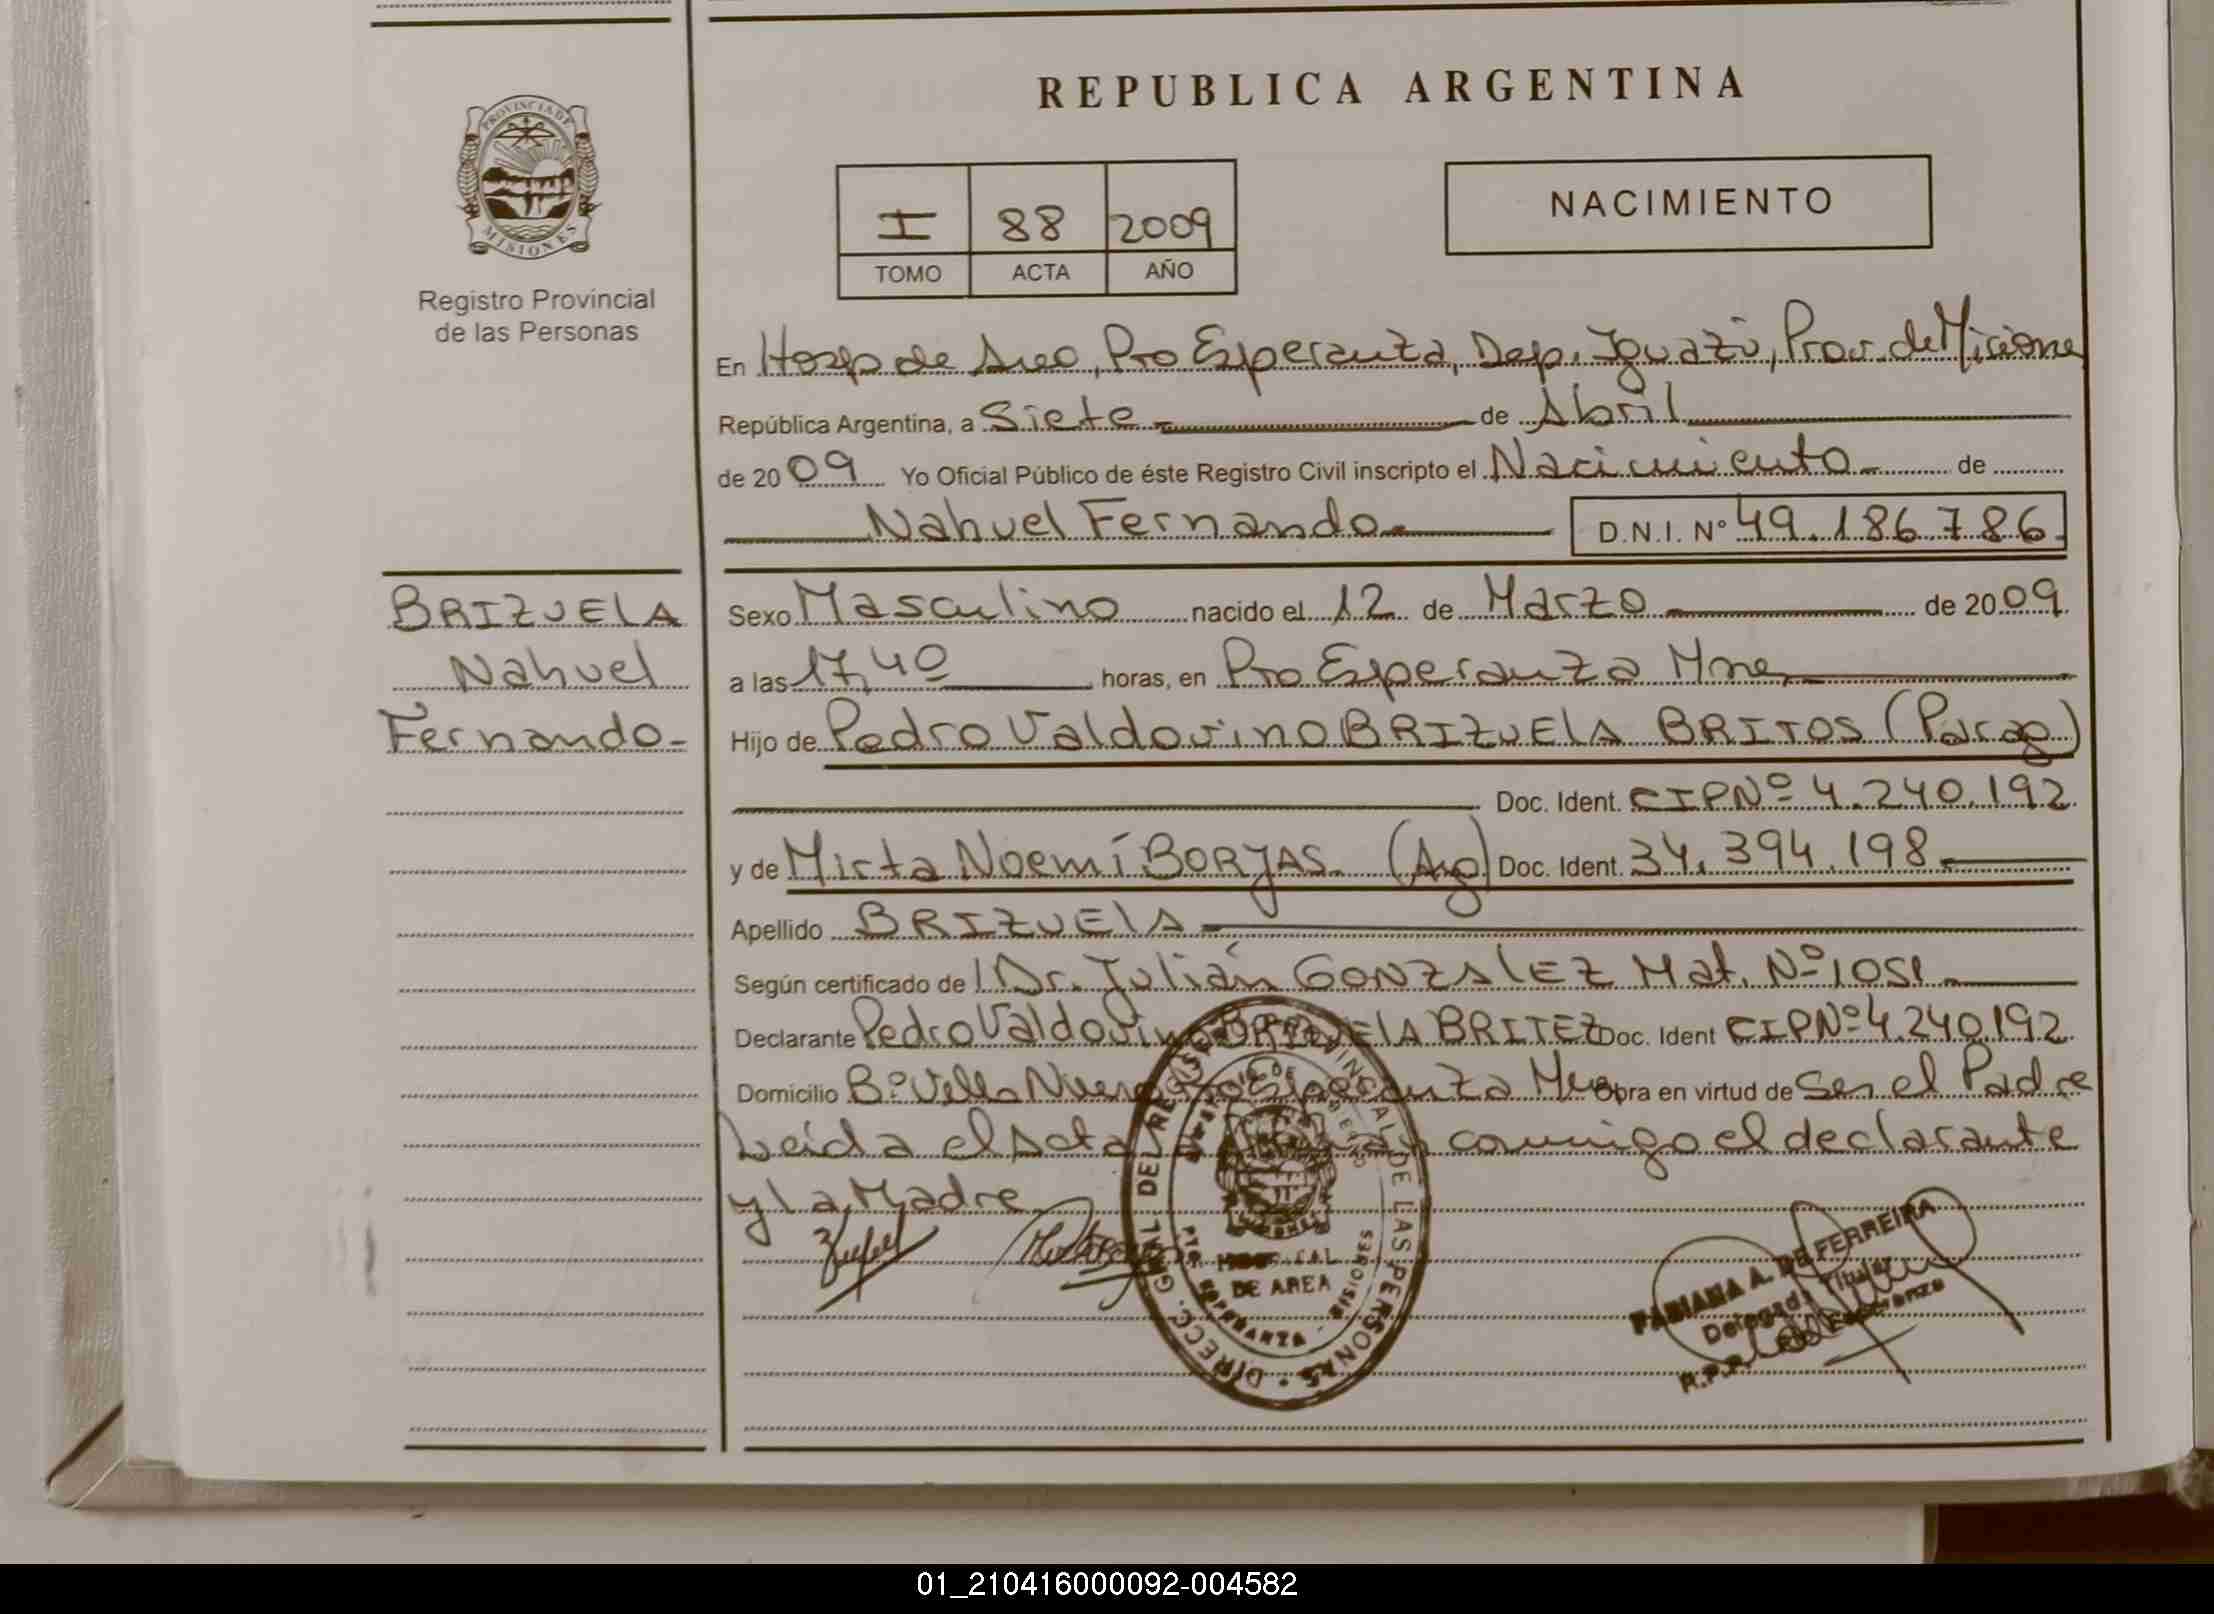 REPUBLICA ARGENTINA
PROVINCIA DE
MISIONES
Registro Provincial
de las Personas
I 88 2009
TOMO ACTA AÑO
NACIMIENTO
En Hosp de Area, Pto Esperanza, Dep. Iguazú, Prov. de Misiones
República Argentina, a Siete de Abril
de 2009 Yo Oficial Público de éste Registro Civil inscripto el Nacimiento de
Nahuel Fernando D.N.I. Nº 49.186.786
BRIZUELA
Nahuel
Fernando
Sexo Masculino nacido el 12 de Marzo de 2009
a las 17,40 horas, en Pto Esperanza Mnes
Hijo de Pedro Valdovino BRIZUELA BRITOS (Parag)
Doc. Ident. CIPNº 4.240.192
y de Mirta Noemí BORJAS (Arg) Doc. Ident. 34.394.198
Apellido BRIZUELA
Según certificado de l Dr. Julián GONZALEZ Mat. Nº 1051
Declarante Pedro Valdovino BRIZUELA BRITEZ Doc. Ident CIPNº 4.240.192
Domicilio Bº Villa Nueva Pto Esperanza Mnes Obra en virtud de Ser el Padre
Leída el Acta conmigo el declarante
y la Madre
DIRECC. GRAL. DEL REGISTRO PROVINCIAL DE LAS PERSONAS
HOSPITAL
DE AREA
PTO. ESPERANZA - MISIONES
FABIANA A. DE FERREIRA
Delegada Titular
R.P.P. Pto. Esperanza
01_210416000092-004582